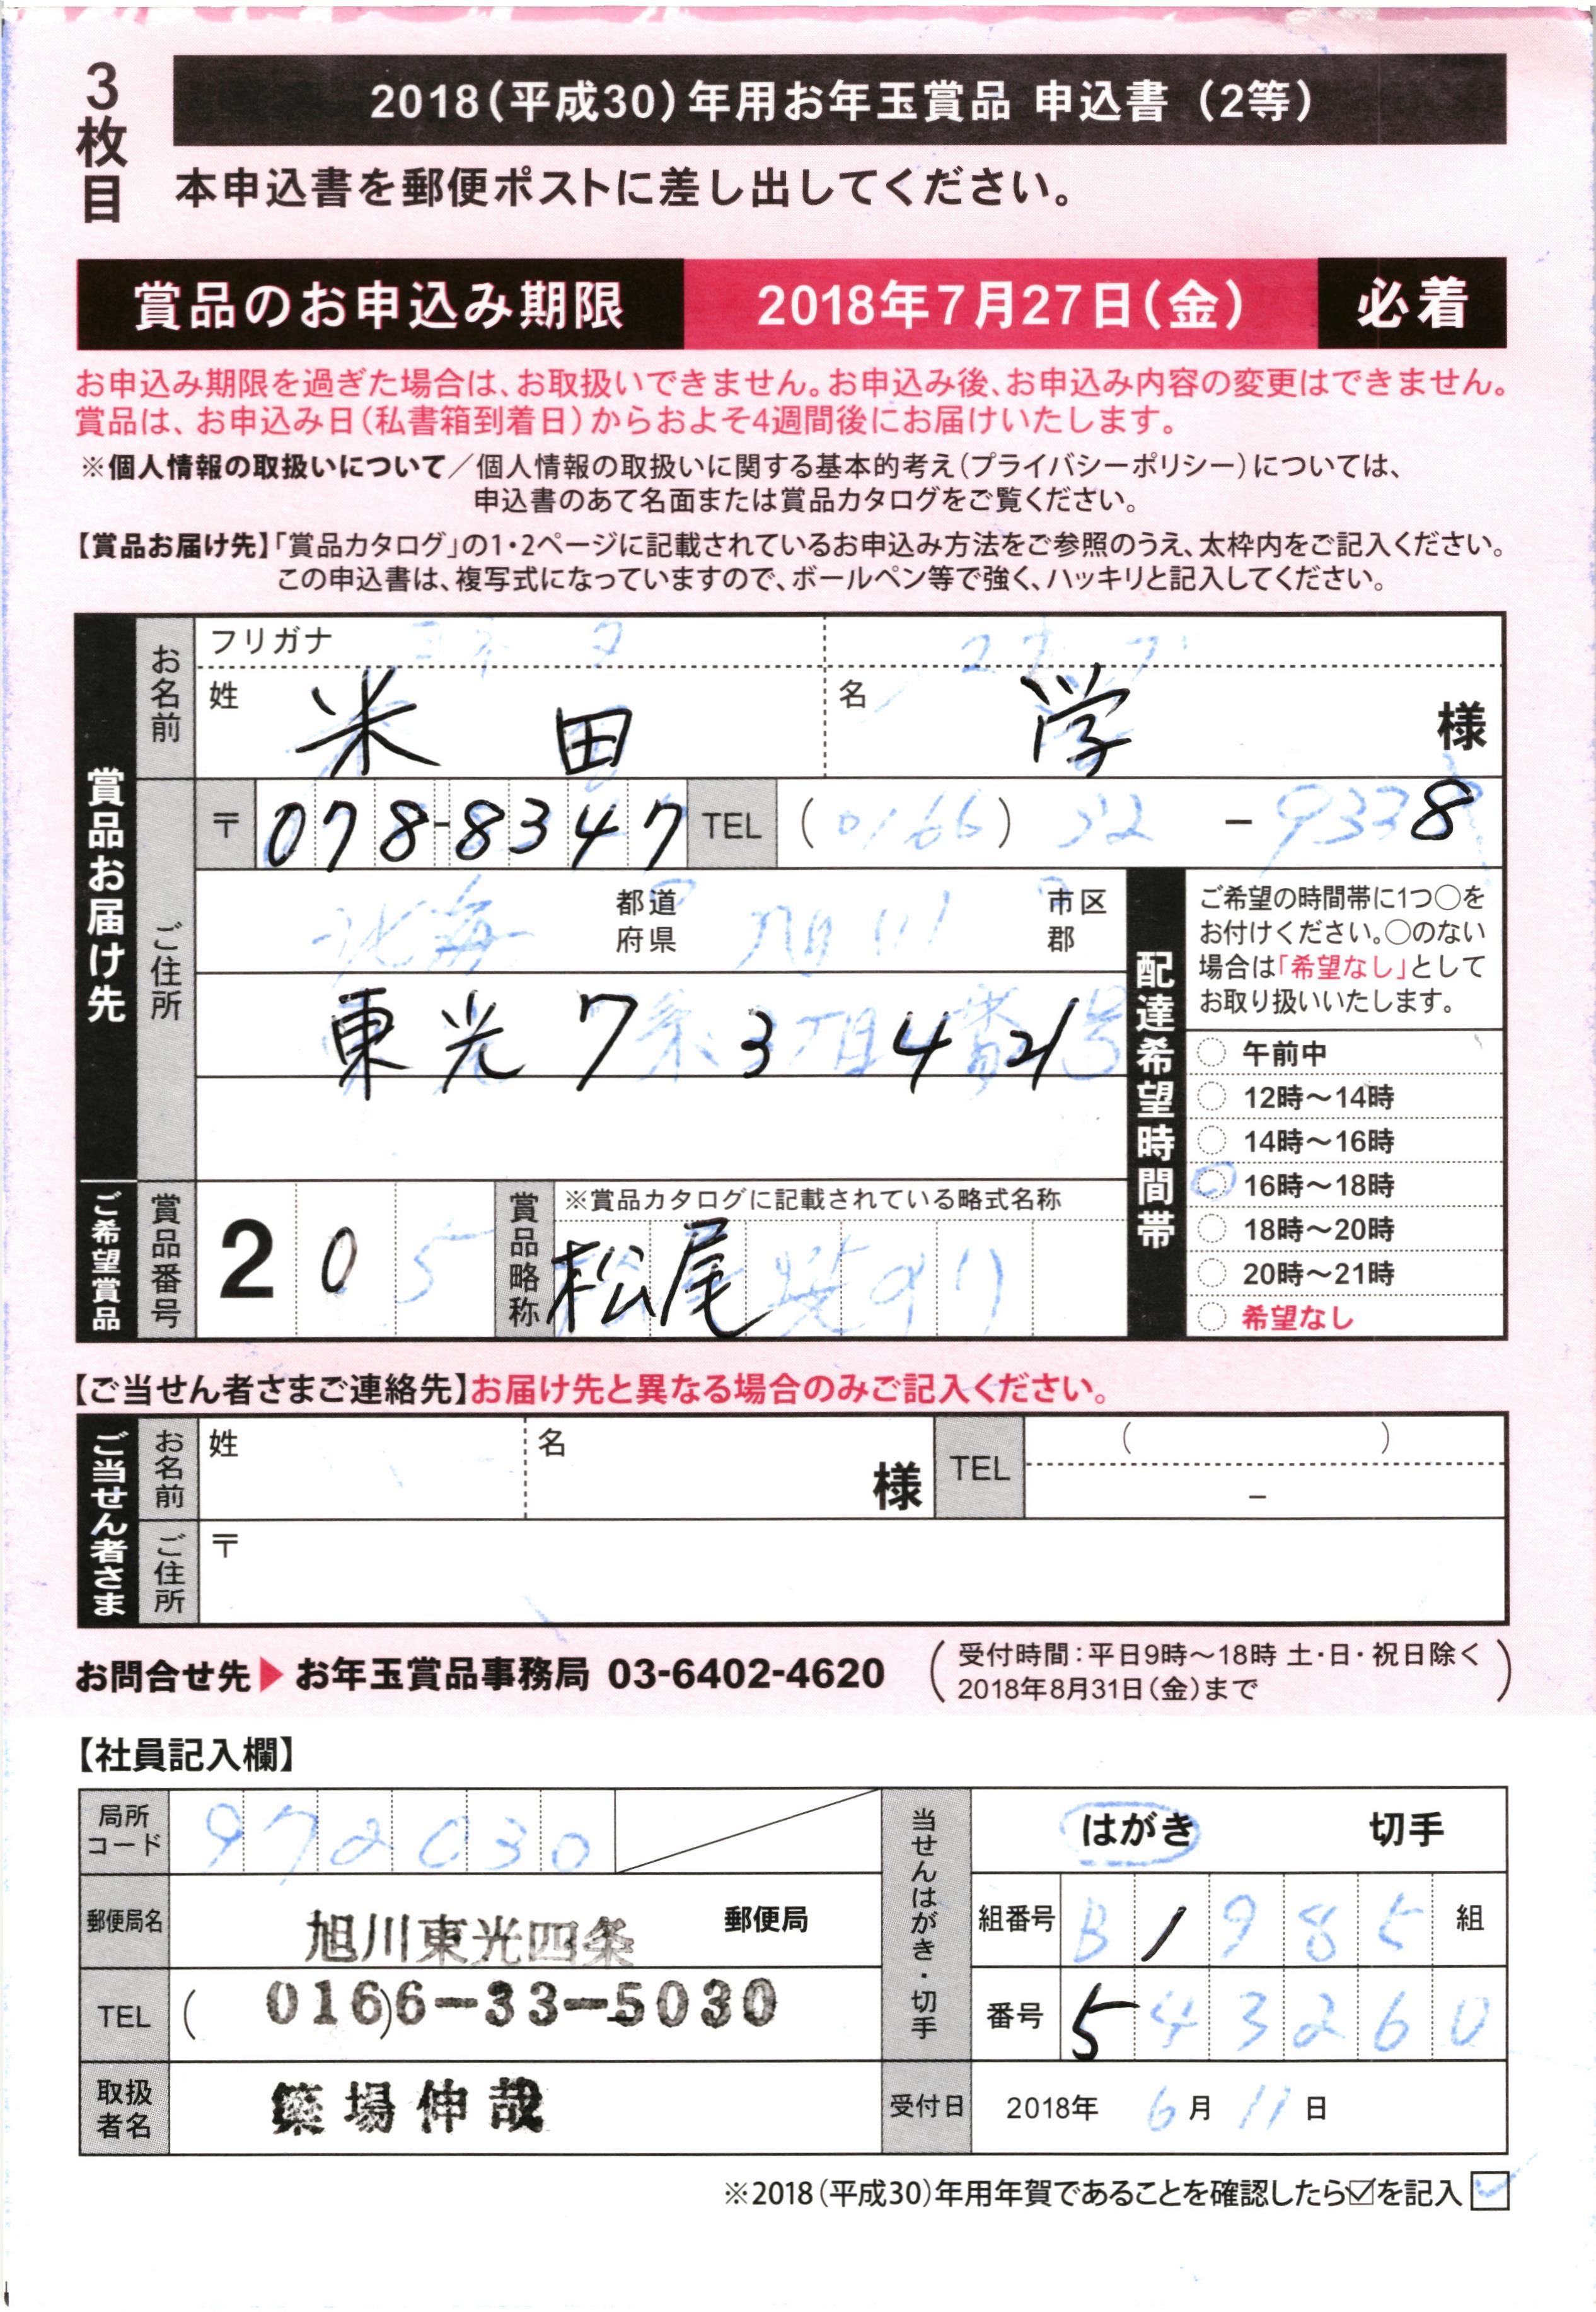 3枚目
2018(平成30)年用お年玉賞品 申込書(2等)
本申込書を郵便ポストに差し出してください。
賞品のお申込み期限 2018年7月27日(金) 必着
お申込み期限を過ぎた場合は、お取扱いできません。お申込み後、お申込み内容の変更はできません。
賞品は、お申込み日(私書箱到着日)からおよそ4週間後にお届けいたします。
※個人情報の取扱いについて/個人情報の取扱いに関する基本的考え(プライバシーポリシー)については、
申込書のあて名面または賞品カタログをご覧ください。
【賞品お届け先】「賞品カタログ」の1・2ページに記載されているお申込み方法をご参照のうえ、太枠内をご記入ください。
この申込書は、複写式になっていますので、ボールペン等で強く、ハッキリと記入してください。
賞品お届け先
お名前
フリガナ ヨネタ
姓 米田 名 学 様
ご住所
〒 078-8347 TEL (0166) 32 - 9338
北海 都道府県 旭川 市区郡
東光7条3丁目4番21号
配達希望時間帯
ご希望の時間帯に1つ○を
お付けください。○のない
場合は「希望なし」として
お取り扱いいたします。
午前中
12時～14時
14時～16時
16時～18時
18時～20時
20時～21時
希望なし
ご希望賞品
賞品番号 205
賞品略称 ※賞品カタログに記載されている略式名称
松尾
【ご当せん者さまご連絡先】お届け先と異なる場合のみご記入ください。
ご当せん者さま
お名前 姓 名 様 TEL ( ) -
ご住所 〒
お問合せ先▶お年玉賞品事務局 03-6402-4620 (受付時間:平日9時～18時 土・日・祝日除く
2018年8月31日(金)まで)
【社員記入欄】
局所コード 972030
郵便局名 旭川東光四条 郵便局
TEL ( 0166-33-5030
取扱者名 簗場伸哉
当せんはがき・切手
はがき 切手
組番号 B1985 組
番号 543260
受付日 2018年 6月 11日
※2018(平成30)年用年賀であることを確認したら☑を記入